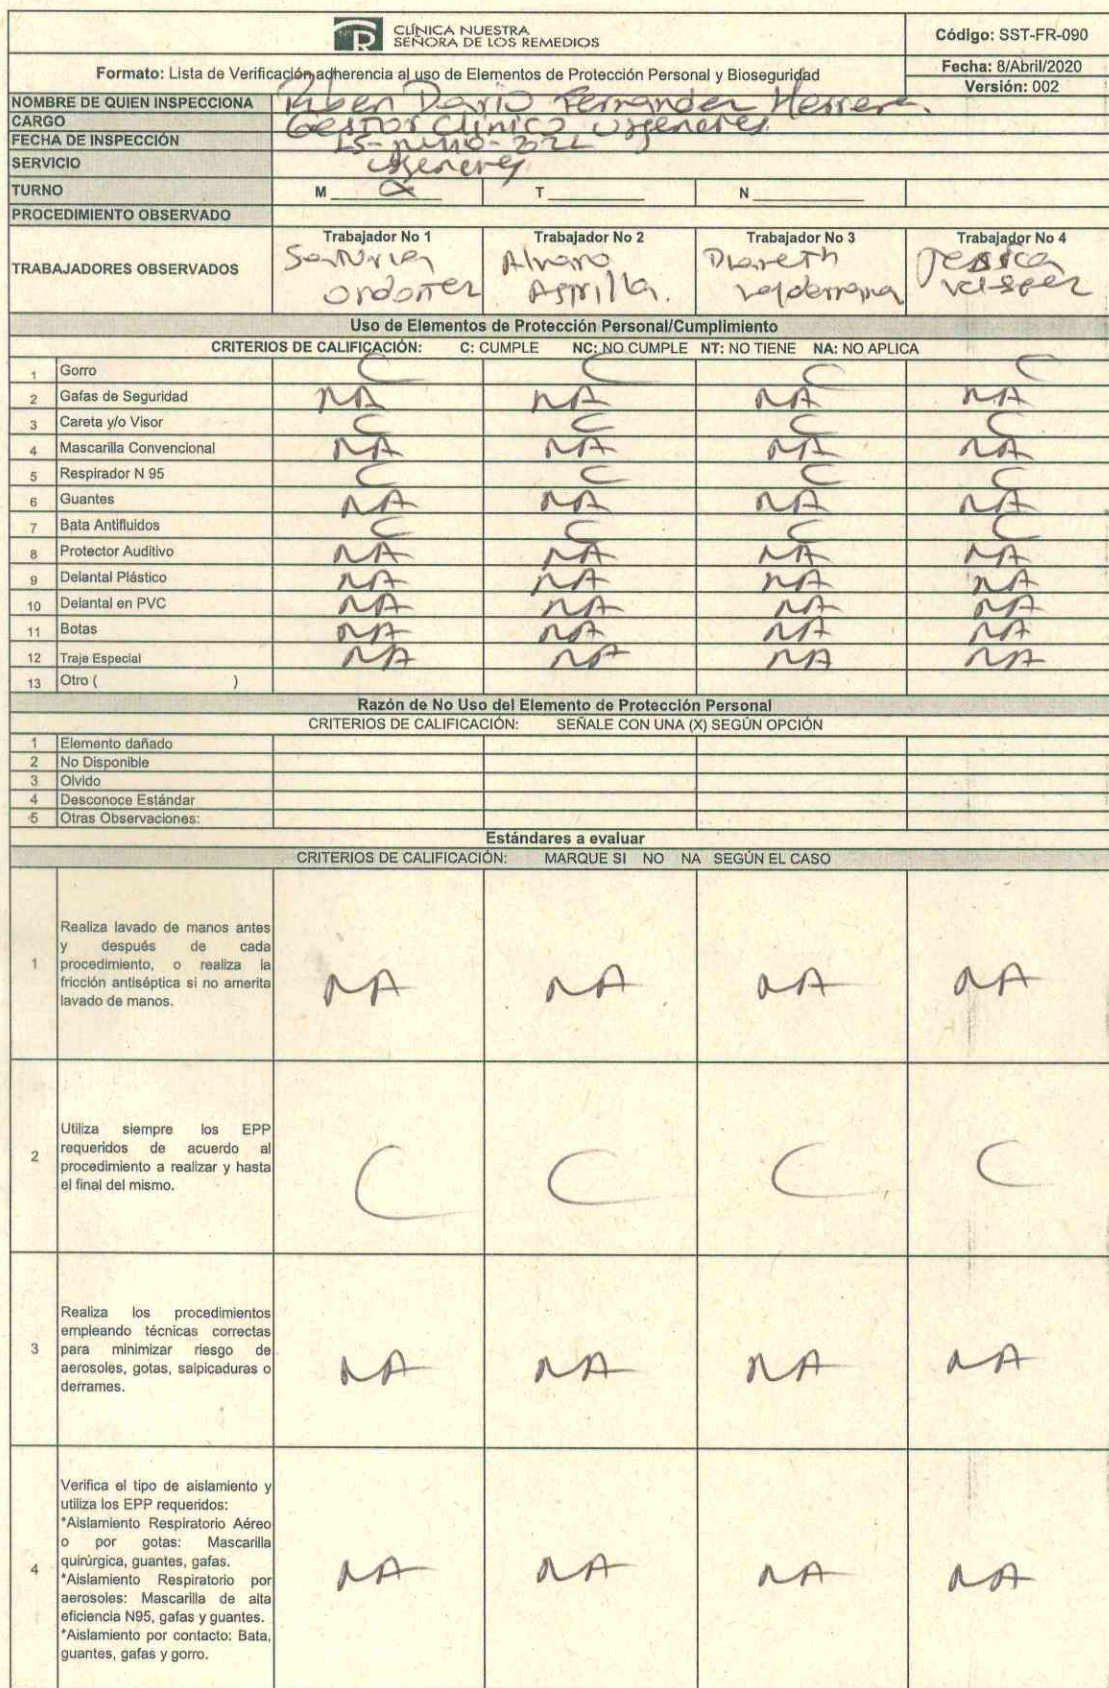 CLÍNICA NUESTRA
SEÑORA DE LOS REMEDIOS
Código: SST-FR-090
Formato: Lista de Verificación adherencia al uso de Elementos de Protección Personal y Bioseguridad
Fecha: 8/Abril/2020
Versión: 002
NOMBRE DE QUIEN INSPECCIONA Ruben Dario Fernandez Herrera.
CARGO Gestor Clinico
FECHA DE INSPECCIÓN 15-Junio-
SERVICIO
TURNO M T N
PROCEDIMIENTO OBSERVADO
TRABAJADORES OBSERVADOS
Trabajador No 1 Trabajador No 2 Trabajador No 3 Trabajador No 4
Alvaro Jessica
Ordoñez Asprilla. Valderrama
Uso de Elementos de Protección Personal/Cumplimiento
CRITERIOS DE CALIFICACIÓN: C: CUMPLE NC: NO CUMPLE NT: NO TIENE NA: NO APLICA
1 Gorro C C C C
2 Gafas de Seguridad NA NA NA NA
3 Careta y/o Visor C C C C
4 Mascarilla Convencional NA NA NA NA
5 Respirador N 95 C C C C
6 Guantes NA NA NA NA
7 Bata Antifluidos C C C C
8 Protector Auditivo NA NA NA NA
9 Delantal Plástico NA NA NA NA
10 Delantal en PVC NA NA NA NA
11 Botas NA NA NA NA
12 Traje Especial NA NA NA NA
13 Otro ( )
Razón de No Uso del Elemento de Protección Personal
CRITERIOS DE CALIFICACIÓN: SEÑALE CON UNA (X) SEGÚN OPCIÓN
1 Elemento dañado
2 No Disponible
3 Olvido
4 Desconoce Estándar
5 Otras Observaciones:
Estándares a evaluar
CRITERIOS DE CALIFICACIÓN: MARQUE SI NO NA SEGÚN EL CASO
1
Realiza lavado de manos antes
y después de cada
procedimiento, o realiza la
fricción antiséptica si no amerita
lavado de manos.
NA NA NA NA
2
Utiliza siempre los EPP
requeridos de acuerdo al
procedimiento a realizar y hasta
el final del mismo.
C C C C
3
Realiza los procedimientos
empleando técnicas correctas
para minimizar riesgo de
aerosoles, gotas, salpicaduras o
derrames.
NA NA NA NA
4
Verifica el tipo de aislamiento y
utiliza los EPP requeridos:
*Aislamiento Respiratorio Aéreo
o por gotas: Mascarilla
quirúrgica, guantes, gafas.
*Aislamiento Respiratorio por
aerosoles: Mascarilla de alta
eficiencia N95, gafas y guantes.
*Aislamiento por contacto: Bata,
guantes, gafas y gorro.
NA NA NA NA